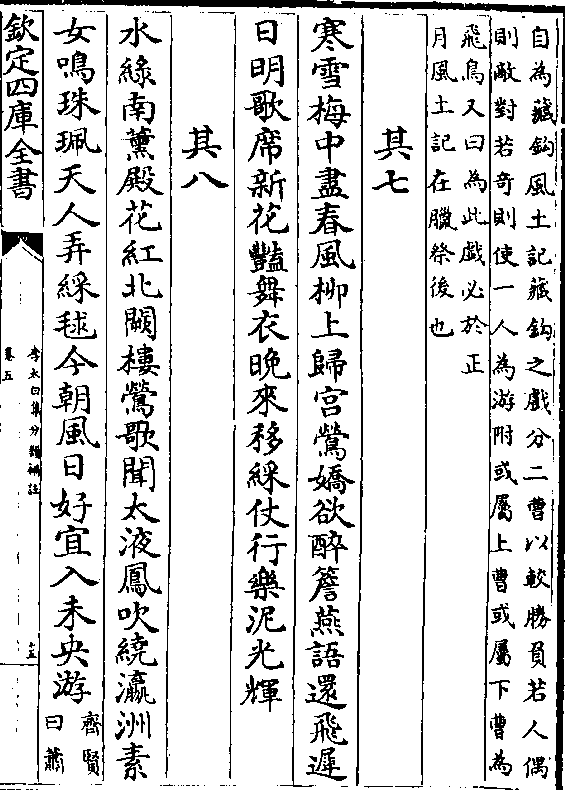 自為藏鈎風土記藏鈎之戲分二曹以較勝負若人偶
則敵對若奇則使一人為游附或屬上曹或屬下曹為
飛鳥又曰為此戲必於正
月風土記在臘祭後也
其七
寒雪梅中盡春風柳上歸宮鶯嬌欲醉簷燕語還飛遲
日明歌席新花豔舞衣晚來移綵仗行樂泥光輝
其八
水綠南薰殿花紅北闕樓鶯歌聞太液鳳吹繞瀛洲素
女鳴珠珮天人弄綵毬今朝風日好宜入未央游
齊賢
曰蕭
欽定四庫全書
李太白集分類補註
卷五
十五